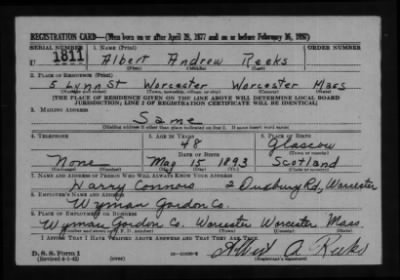 REGISTRATION CARD—(Men born on or after April 28, 1877 and on or before February 16, 1897)
SERIAL NUMBER 1. NAME (Print) ORDER NUMBER
U 1811 Albert Andrew Reeks
(First) (Middle) (Last)
2. PLACE OF RESIDENCE (Print)
5 Lynn St Worcester Worcester Mass
(Number and street) (Town, township, village, or city) (County) (State)
[THE PLACE OF RESIDENCE GIVEN ON THE LINE ABOVE WILL DETERMINE LOCAL BOARD
JURISDICTION; LINE 2 OF REGISTRATION CERTIFICATE WILL BE IDENTICAL]
3. MAILING ADDRESS
Same
[Mailing address if other than place indicated on line 2. If same insert word same]
4. TELEPHONE 5. AGE IN YEARS 6. PLACE OF BIRTH
48 Glascow
DATE OF BIRTH (Town or county)
None May 15 1893 Scotland
(Mo.) (Day) (Yr.) (State or country)
7. NAME AND ADDRESS OF PERSON WHO WILL ALWAYS KNOW YOUR ADDRESS
Harry Connors 2 Duxbury Rd, Worcester
8. EMPLOYER'S NAME AND ADDRESS
Wyman Gordon Co.
9. PLACE OF EMPLOYMENT OR BUSINESS
Wyman Gordon Co. Worcester Worcester Mass.
(Town) (County) (State)
I AFFIRM THAT I HAVE VERIFIED ABOVE ANSWERS AND THAT THEY ARE TRUE.
D. S. S. Form 1 Albert A. Reeks
(Revised 4-1-42) (over) (Registrant's signature)